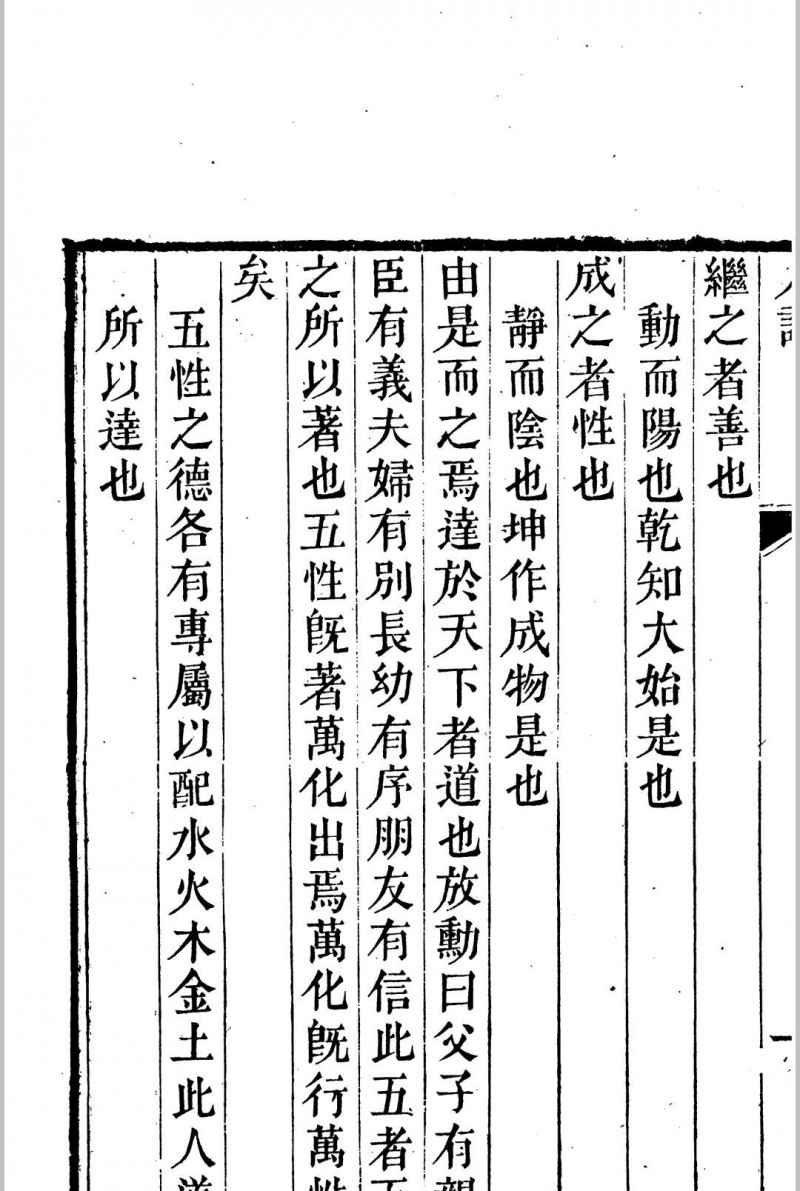 繼之者善也
動而陽也乾知大始是也
成之者性也
靜而陰也坤作成物是也
由是而之焉達於天下者道也放勳曰父子有
臣有義夫婦有別長幼有序朋友有信此五者
之所以著也五性旣著萬化出焉萬化旣行萬
矣
五性之德各有專屬以配水火木金土此人
所以達也